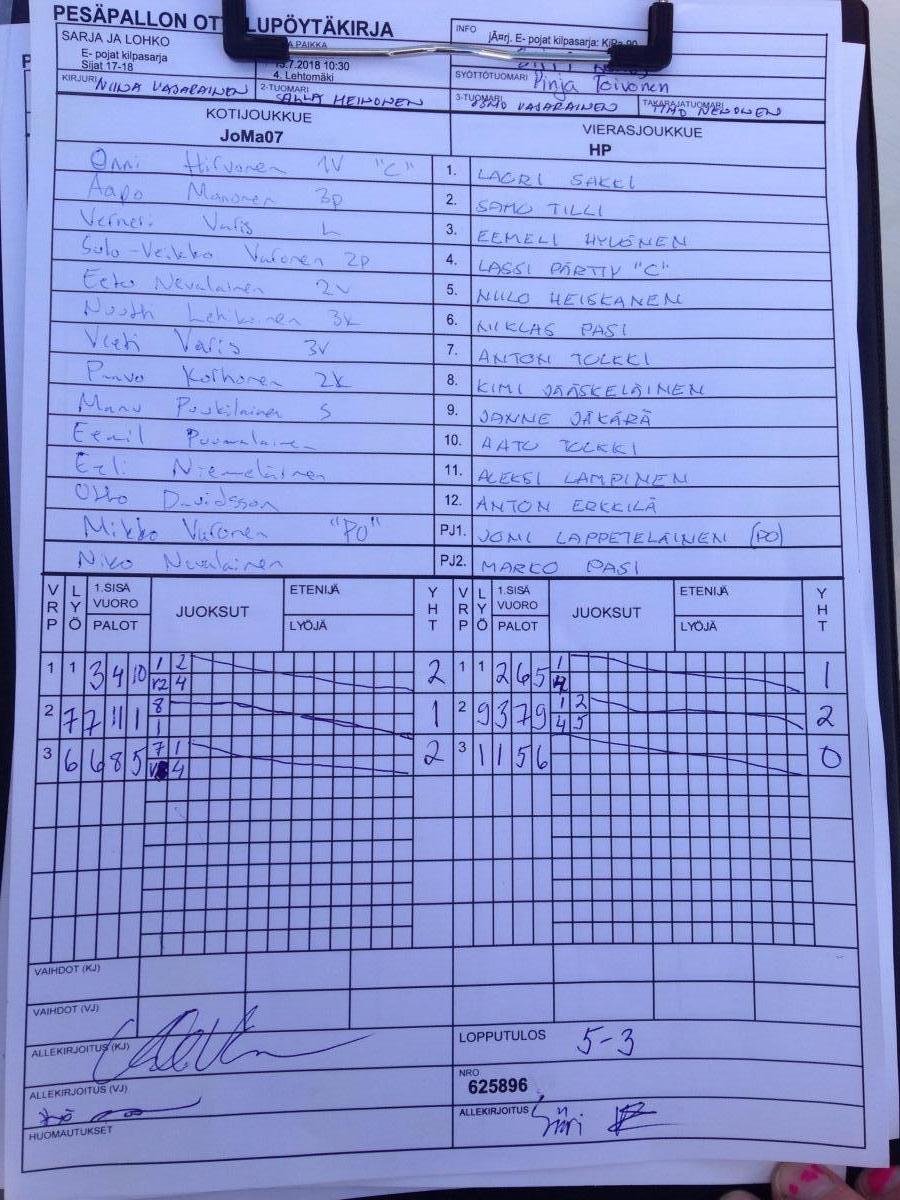 PESÄPALLON OTTELUPÖYTÄKIRJA
SARJA JA LOHKO
E- pojat kilpasarja
Sijat 17-18
PAIKKA
.7.2018 10:30
4. Lehtomäki
INFO
jÄ¤rj. E- pojat kilpasarja: KiPa
SYÖTTÖTUOMARI Pinja Toivonen
KIRJURI NIINA VAJARAINEN
2-TUOMARI SALLA HEINONEN
3-TUOMARI VAJARAINEN
TAKARAJATUOMARI TIMO NENONEN
KOTIJOUKKUE
JoMa07
VIERASJOUKKUE
HP
Onni Hirvonen 1V "C" 1. LAURI SAKKI
Aapo Manonen 3p 2. SAMU TILLI
Verneri Varis L 3. EEMELI HYVÖNEN
Sulo-Veikko Varonen 2p 4. LASSI PÄRTTY "C"
Eetu Nevalainen 2v 5. NIILO HEISKANEN
Nuutti Lehikoinen 3k 6. NIKLAS PASI
Varis 3V 7. ANTON TOLKKI
Paavo Korhonen 2k 8. KIMI JÄÄSKELÄINEN
Manu Puukilainen S 9. JANNE JÄKÄRÄ
Eemil Puumalainen 10. AATU TOLKKI
Eeli Niemeläinen 11. ALEKSI LAMPINEN
Otto Davidsson 12. ANTON ERKKILÄ
Mikko Varonen "PO" PJ1. JONI LAPPETELÄINEN (PO)
Niko Nevalainen PJ2. MARKO PASI
VRP LYÖ 1.SISÄ VUORO PALOT JUOKSUT ETENIJÄ LYÖJÄ YHT VRP LYÖ 1.SISÄ VUORO PALOT JUOKSUT ETENIJÄ LYÖJÄ YHT
1 1 3 4 10 1 2 2 1 1 2 6 5 1 1
12 4 4
2 7 7 11 1 8 1 2 9 3 7 9 1 2 2
1 4 5
3 6 6 8 5 7 1 2 3 1 1 5 6 0
4
VAIHDOT (KJ)
VAIHDOT (VJ)
ALLEKIRJOITUS (KJ)
LOPPUTULOS 5-3
ALLEKIRJOITUS (VJ)
NRO
625896
HUOMAUTUKSET
ALLEKIRJOITUS Siiri